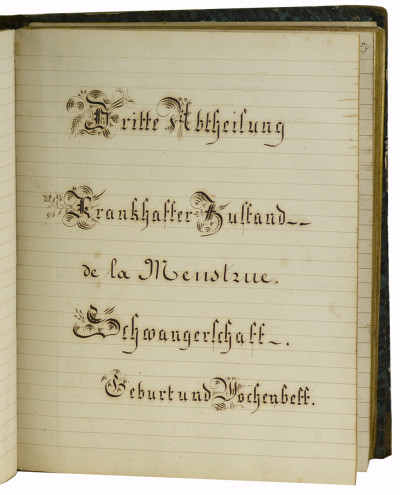 Dritte Abtheilung
Krankhafter Zustand
de la Menstrue.
Schwangerschaft.
Geburt und Wochenbett.